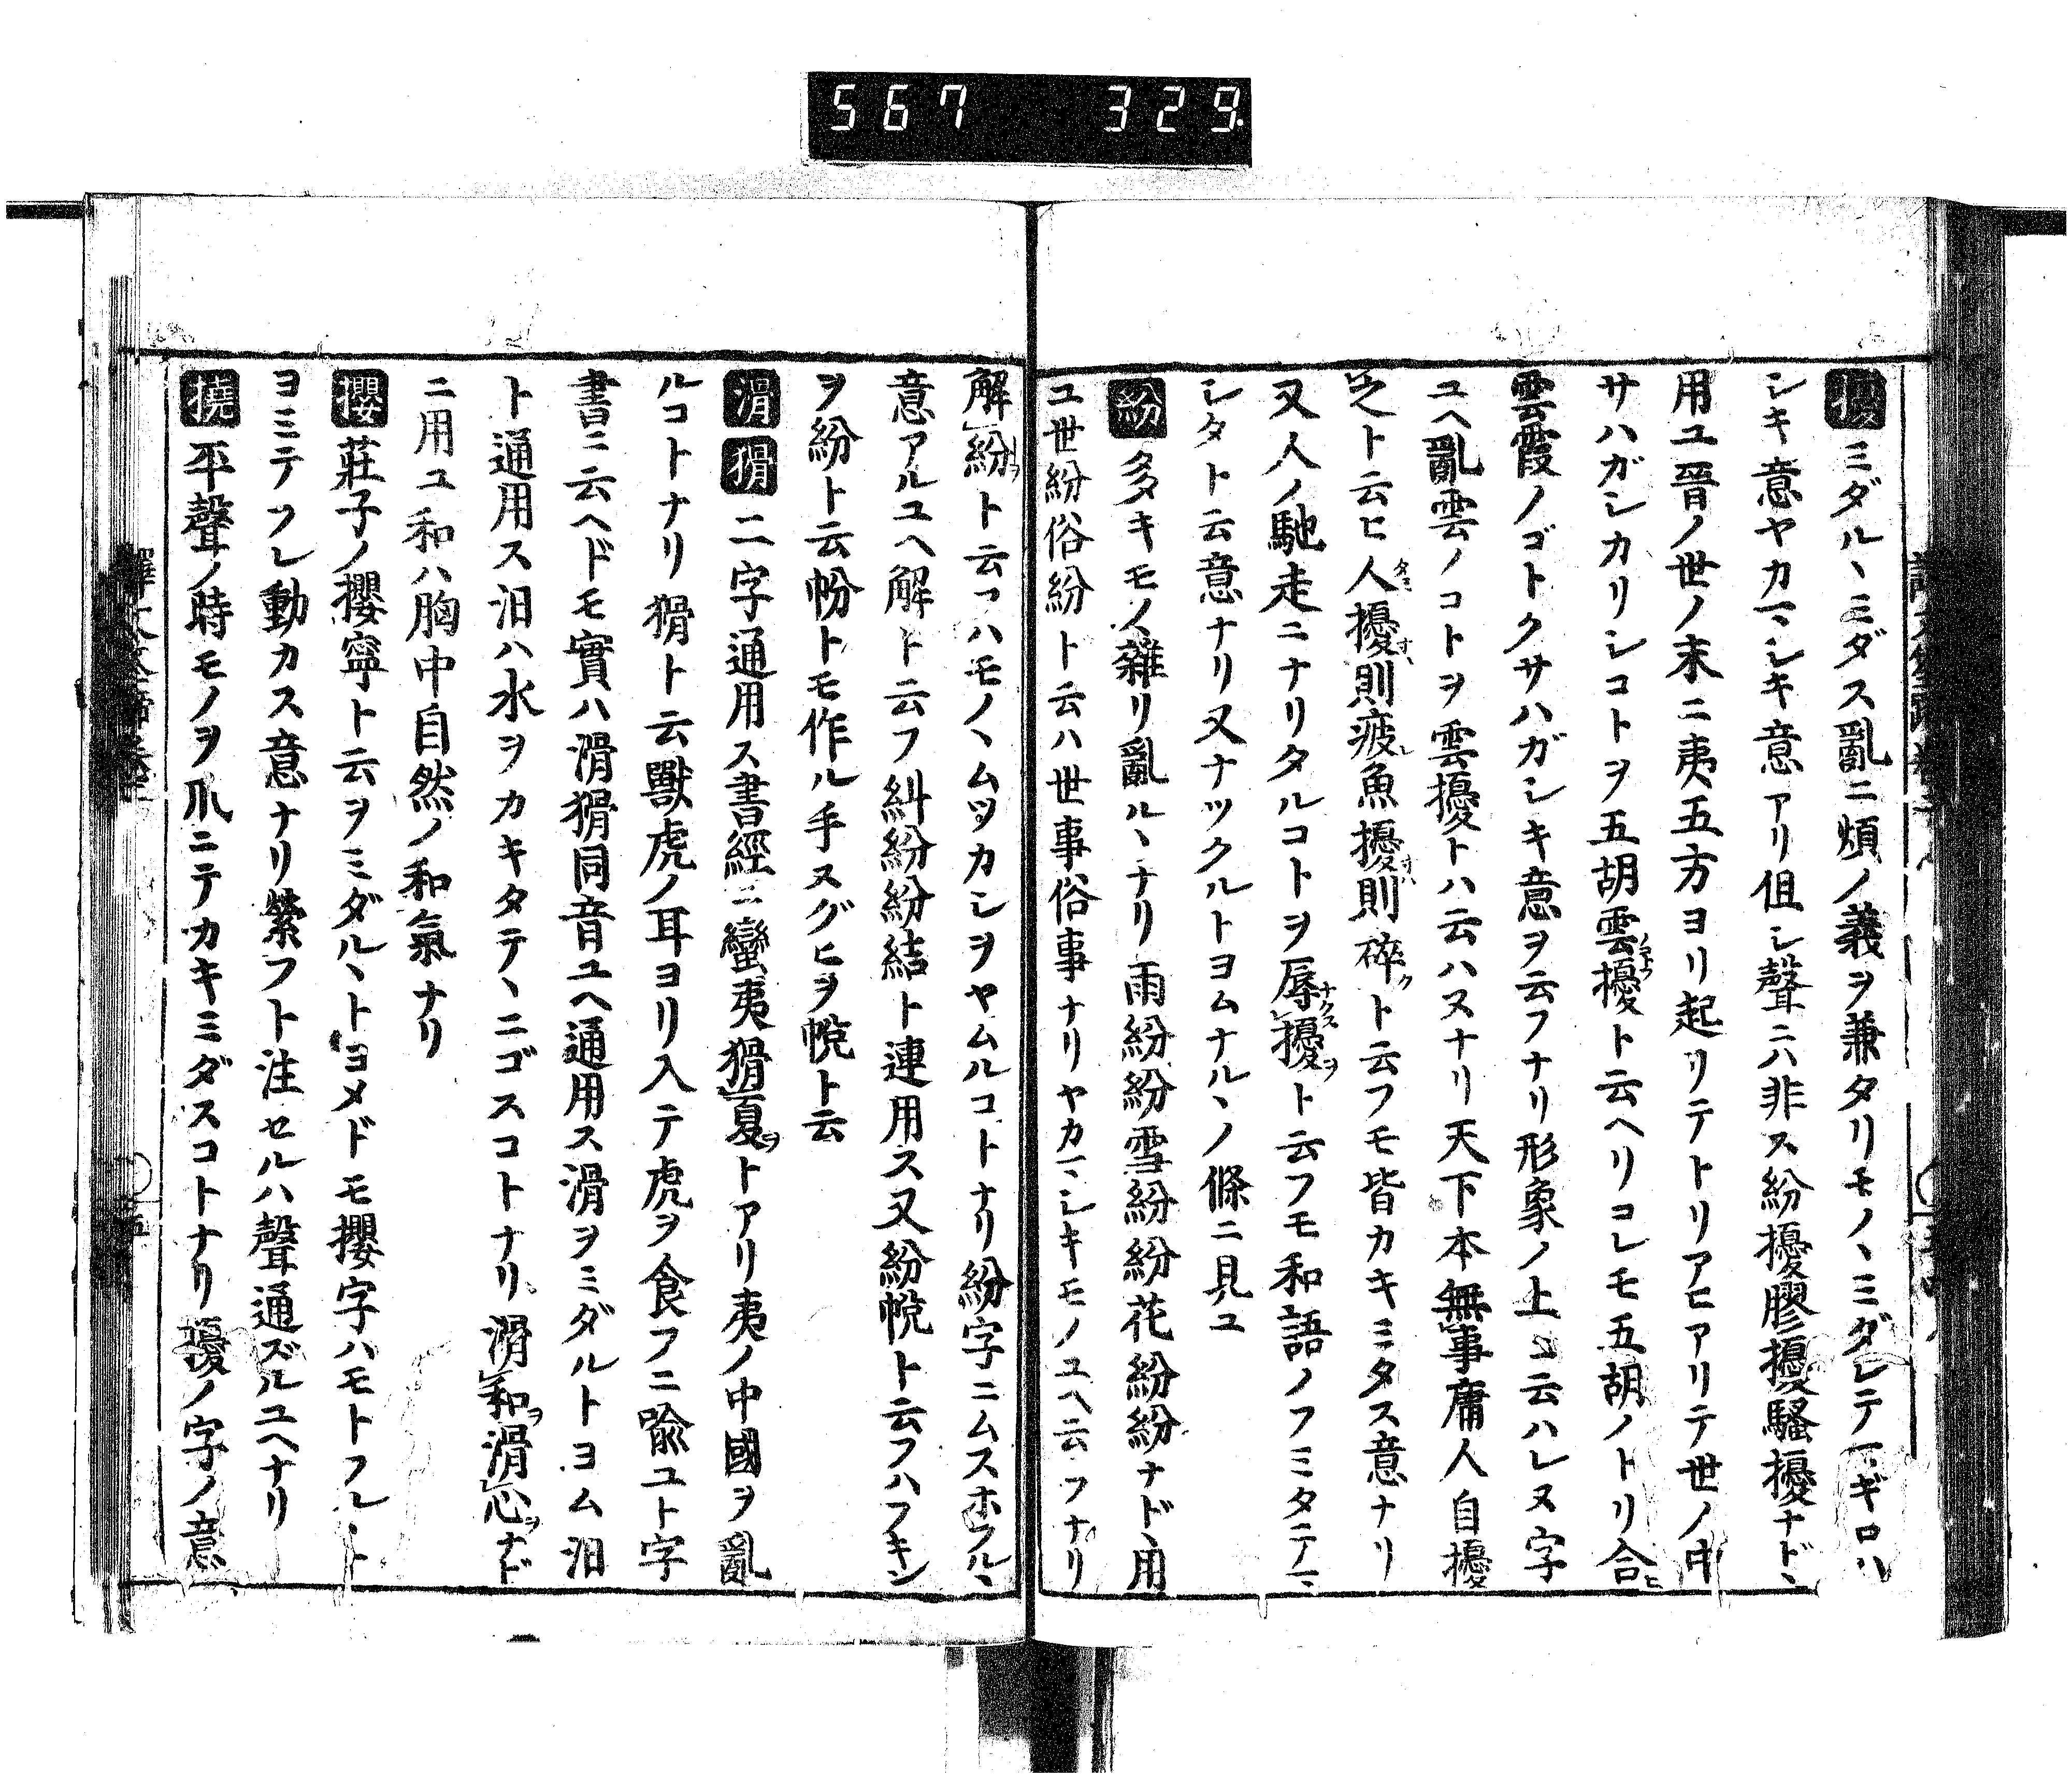 567 329
擾ミダル、ミダス亂ニ煩ノ義ヲ兼タリモノ、ミダレテマギロハ
シキ意ヤカマシキ意アリ但シ聲ニハ非ス紛擾膠擾騷擾ナド、
用ユ晉ノ世ノ末ニ夷五方ヨリ起リテトリアヒアリテ世ノ中
サハガシカリシコトヲ五胡雲擾ト云ヘリコレモ五胡ノトリ合ヒ
雲霞ノゴトクサハガシキ意ヲ云フナリ形象ノ上ニ云ハレヌ字
ユヘ亂雲ノコトヲ雲擾トハ云ハヌナリ天下本無事庸人自擾
之ト云ヒ人擾則疲魚擾則碎クト云フモ皆カキミタス意ナリ
又人ノ馳走ニナリタルコトヲ辱擾ヲト云フモ和語ノフミタテマ
シタト云意ナリ又ナツクルトヨムナル、ノ條ニ見ユ
紛多キモノ雜リ亂ル、ナリ雨紛紛雪紛紛花紛紛ナド、用
ユ世紛俗紛ト云ハ世事俗事ナリヤカマシキモノユヘ云フナリ
解紛ヲト云フハモノ、ムツカシヲヤムルコトナリ紛字ニムスホフル、
意アルユヘ解ト云フ糾紛紛結ト連用ス又紛帨ト云フハフキン
ヲ紛ト云帉トモ作ル手ヌグヒヲ帨ト云
滑猾二字通用ス書經ニ蠻夷猾夏ヲトアリ夷ノ中國ヲ亂
ルコトナリ猾ト云獸虎ノ耳ヨリ入テ虎ヲ食フニ喩ユト字
書ニ云ヘドモ實ハ滑猾同音ユヘ通用ス滑ヲミダルトヨム汩
ト通用ス汩ハ水ヲカキタテ、ニゴスコトナリ滑和ヲ滑心ヲナド
ニ用ユ和ハ胸中自然ノ和氣ナリ
攖莊子ノ攖寧ト云ヲミダル、トヨメドモ攖字ハモトフル、ト
ヨミテフレ動カス意ナリ縈フト注セルハ聲通ズルユヘナリ
撓平聲ノ時モノヲ爪ニテカキミダスコトナリ擾ノ字ノ意